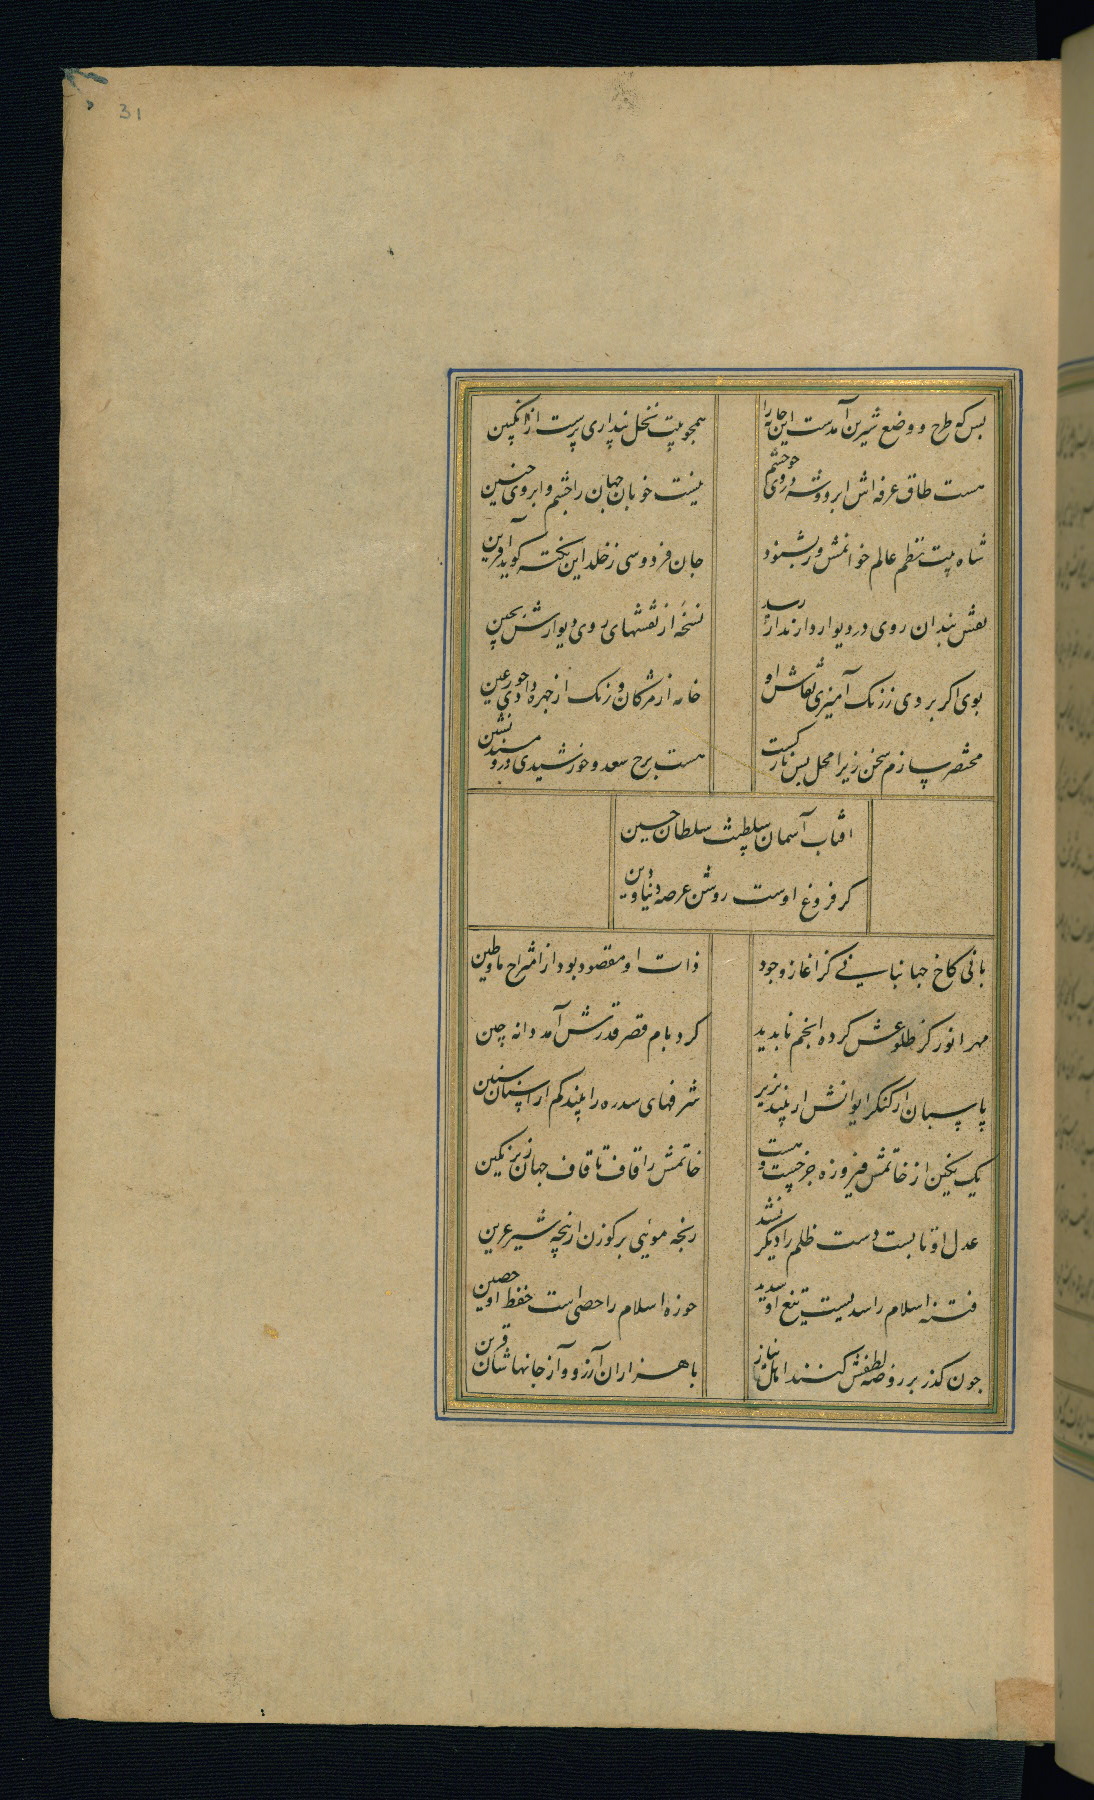 31
بس که طرح و وضع شیرین آمدست این خانه را
همچو بیت نخل پنداری پرست از انکبین
هست طاق غرفه اش ابرو و شه در وی چو چشم
نیست خوبان جهان را چشم و ابروی چنین
شاه بیت نظم عالم خوانمش ور بشنود
جان فردوسی ز خلد این نکته کوید آفرین
نقش بندان روی در دیوار دارند ار رسد
نسخه از نقشهای روی دیوارش بچین
بوی اکر بردی ز رنک آمیزی نقاش او
خامه از مژکان و رنک از چهره دادی حور عین
مختصر سازم سخن زیرا محل بس نازکست
هست برج سعد و خورشیدی درو مسند نشین
افتاب آسمان سلطنت سلطان حسین
کز فروغ اوست روشن عرصه دنیا و دین
بانی کاخ جهانبانی کز اغاز وجود
ذات او مقصود بود از امتزاج ما و طین
مهر انور کز طلوعش کرده انجم ناپدید
کرد بام قصر قدرش آمد دانه چین
پاسبان ار کنکر ایوانش ار بیند بزیر
شرفهای سدره را بیند کم از
یک نکین از خاتمش فیروزه چرخست و هست
خاتمش را قاف تا قاف جهان زیر نکین
عدل او تا بست دست ظلم را دیکر نشد
رنجه مویی بر کوزن از پنجه شیر عرین
فتنه اسلام را سدیست تیغ او سدید
حوزه اسلام را حصنی است حفظ او حصین
چون کذر بر روضه لطفش کنند اهل نیاز
با هزاران آرزو و آز جانهاشان قرین